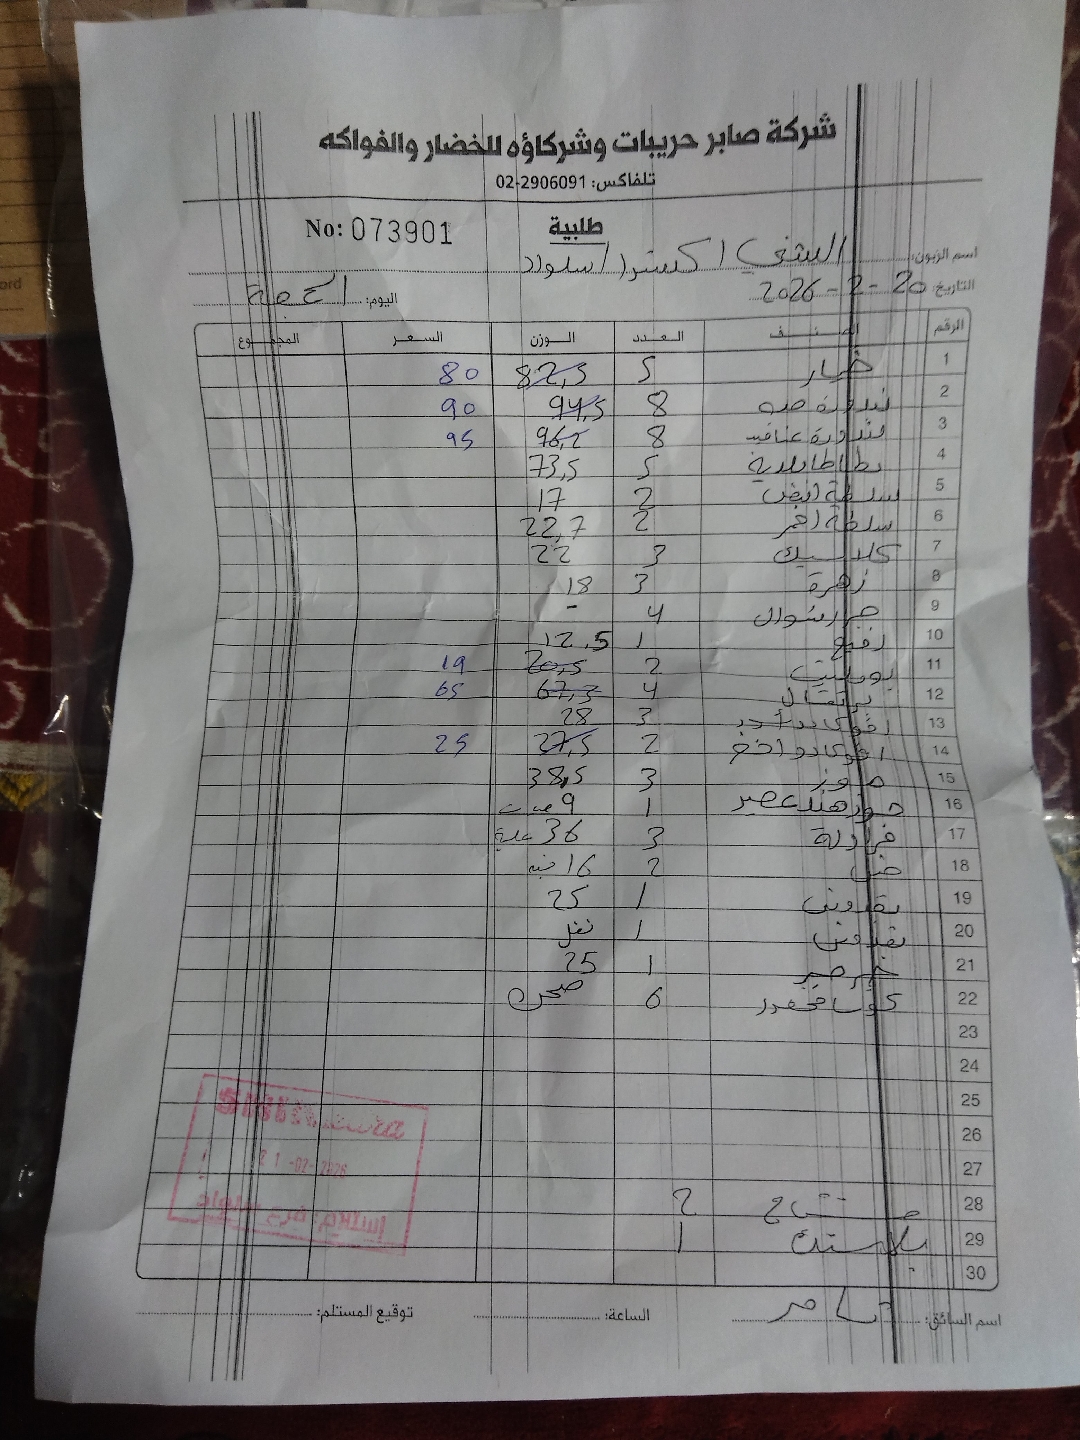 شركة صابر حريبات وشركاؤه للخضار والفواكه
تلفاكس: 02-2906091
No: 073901
طلبية
اسم الزبون: الشني اكسترا سلواد
التاريخ: 20 - 2 - 2026
اليوم: الجمعة
الرقم الصنف العدد الوزن السعر المجموع
1 خيار 5 82,5 80
2 بندورة 8 94,5 90
3 بندورة عناقيد 8 96,2 95
4 بطاطا 5 73,5
5 سلطة ابيض 2 17
6 سلطة احمر 2 22,7
7 كلاسيك 3 22
8 زهرة 3 18
9 جزر شوال 4 -
10 رفيع 1 12,5
11 بومليت 2 20,5 19
12 برتقال 4 67,3 65
13 افوكادو 3 28
14 افوكادو اخضر 2 27,5 25
15 موز 3 38,5
16 جوز هند عصير 1 9 حبات
17 فراولة 3 36 علبة
18 خس 2 16
19 بقدونس 1 25
20 بقدونس 1
21 1 25
22 كوسا محفور 6 صحن
23
24
25
26
27
28 مشتاح 2
29 بلاستك 1
30
21-02-2026
اسم السائق: تامر
الساعة:
توقيع المستلم: